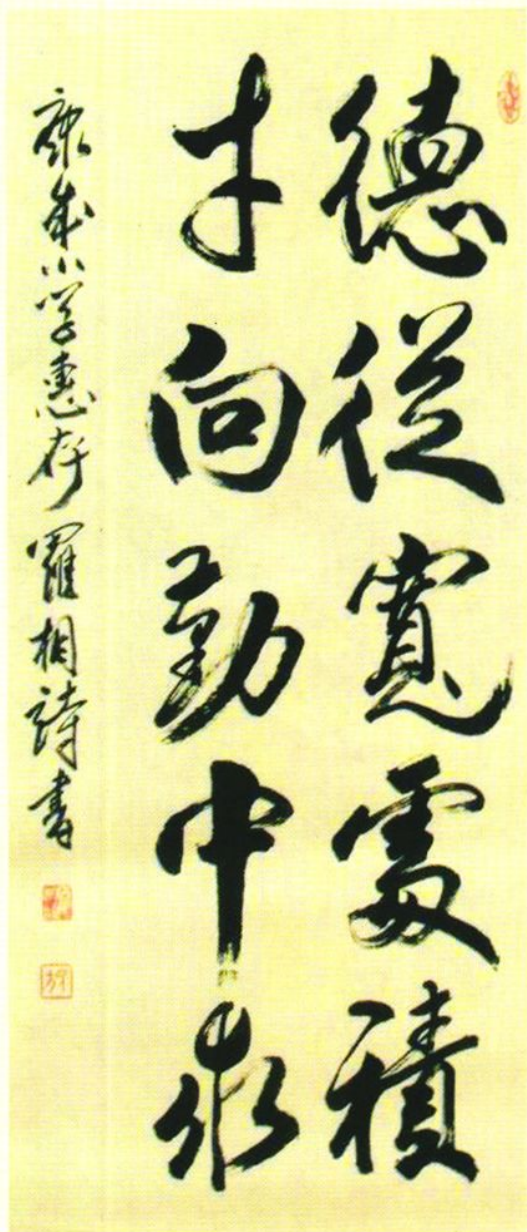 德從寬處積
才向勤中求
康成小学惠存 羅相詩書